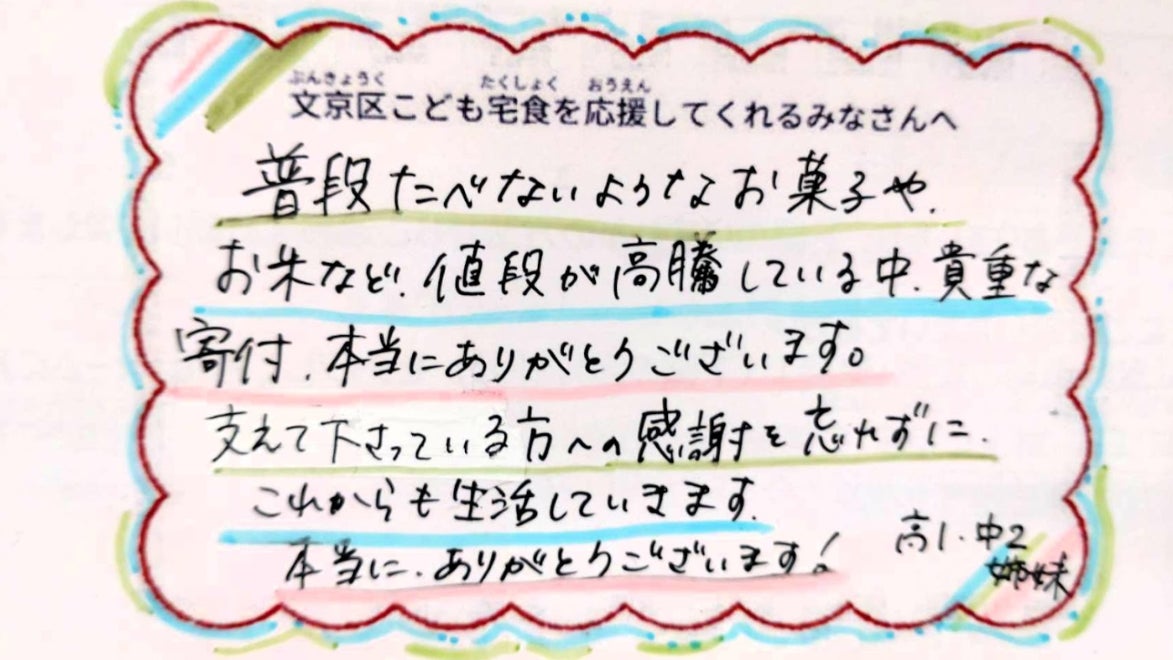 ぶんきょうく たくしょく おうえん
文京区こども宅食を応援してくれるみなさんへ
普段たべないようなお菓子や、
お米など、値段が高騰している中、貴重な
寄付、本当にありがとうございます。
支えて下さっている方への感謝を忘れずに、
これからも生活していきます。
本当に、ありがとうございます!
高1・中2
姉妹